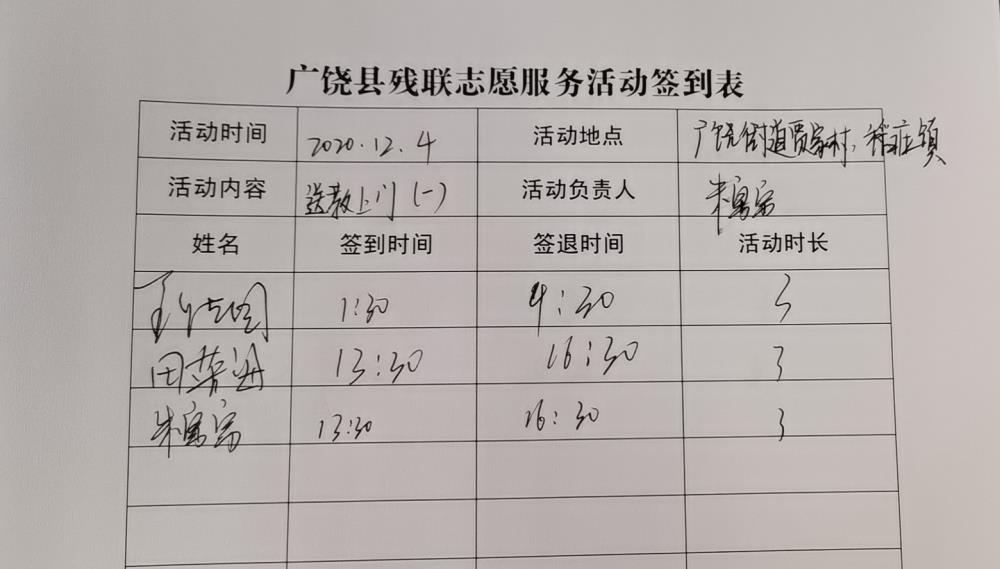 广饶县残联志愿服务活动签到表
活动时间 2020.12.4 活动地点 广饶街道贾家村、稻庄镇
活动内容 送教上门(一) 活动负责人 朱寓宗
姓名 签到时间 签退时间 活动时长
1:30 4:30 3
田荣进 13:30 16:30 3
朱寓宗 13:30 16:30 3